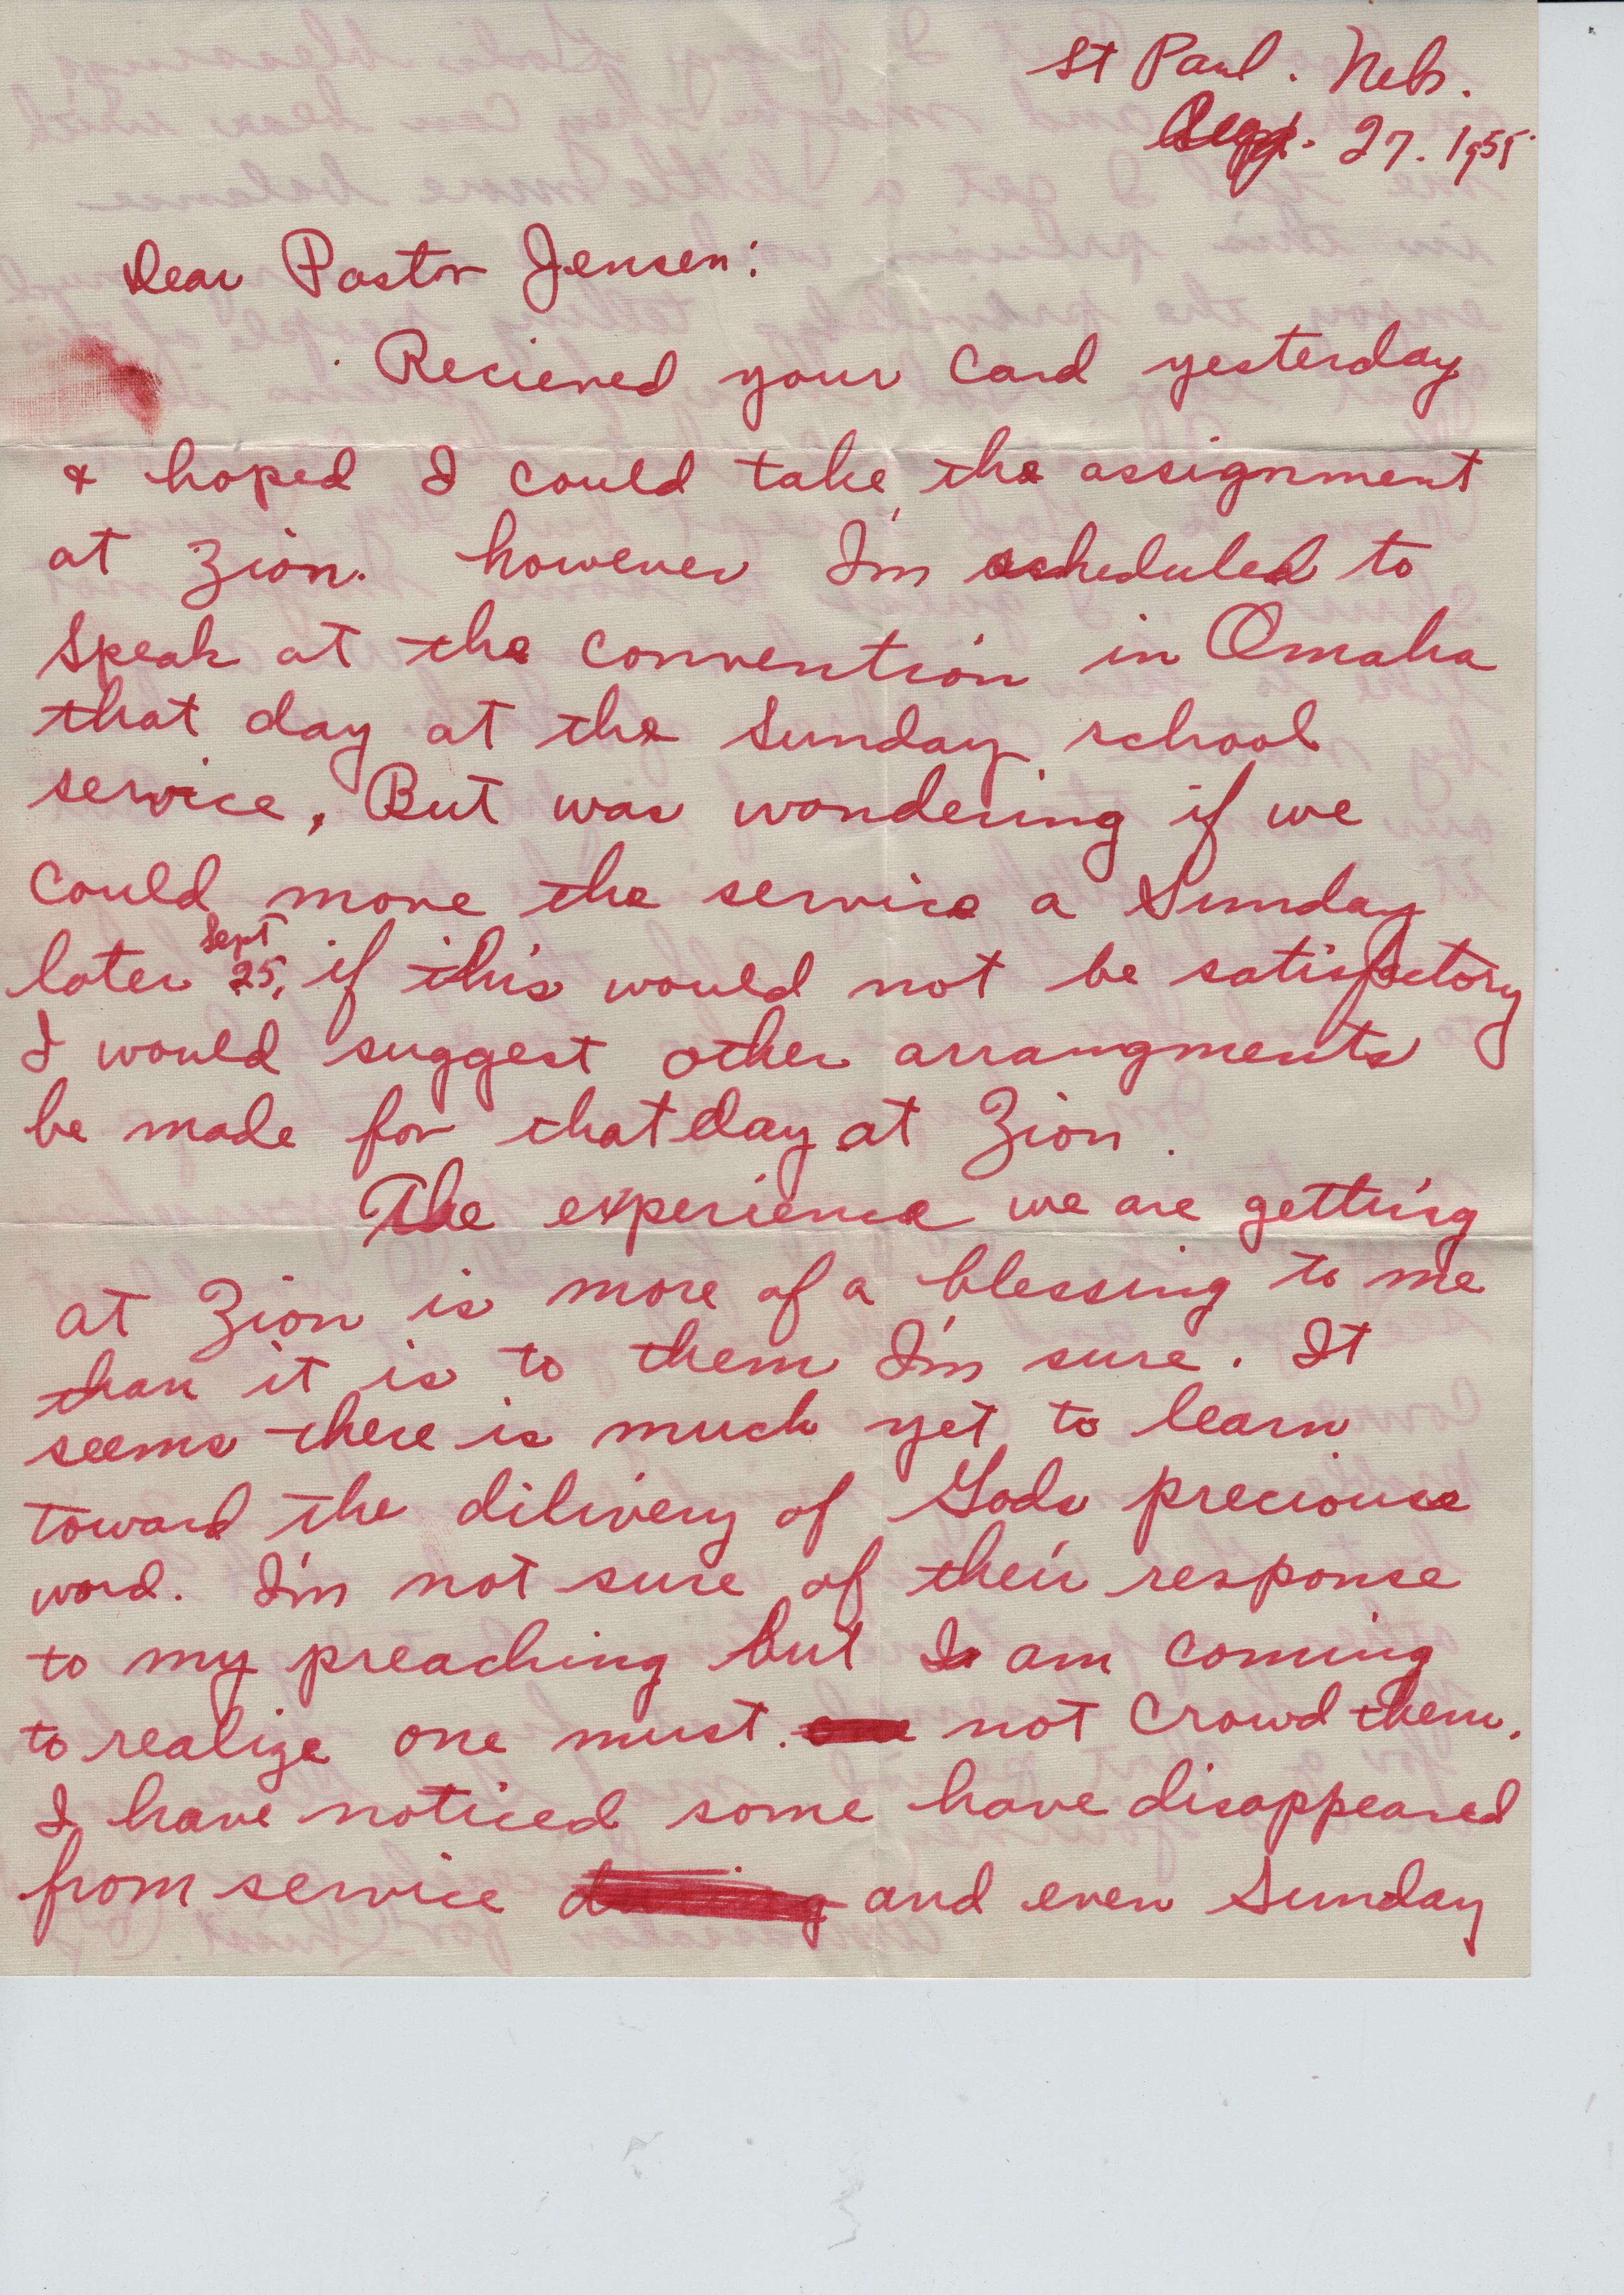 St Paul. Nebr.
Aug. 27. 1955
Dear Pastor Jensen:
Recieved your card yesterday
& hoped I could take the assignment
at Zion. however I'm scheduled to
speak at the convention in Omaha
that day at the Sunday school
service, But was wondering if we
could move the service a Sunday
later Sept 25, if this would not be satisfactory
I would suggest other arrangments
be made for that day at Zion.
The experience we are getting
at Zion is more of a blessing to me
than it is to them I'm sure. It
seems there is much yet to learn
toward the dilivery of Gods preciouse
word. I'm not sure of their response
to my preaching but I am coming
to realize one must not crowd them.
I have noticed some have disappeared
from service and even Sunday